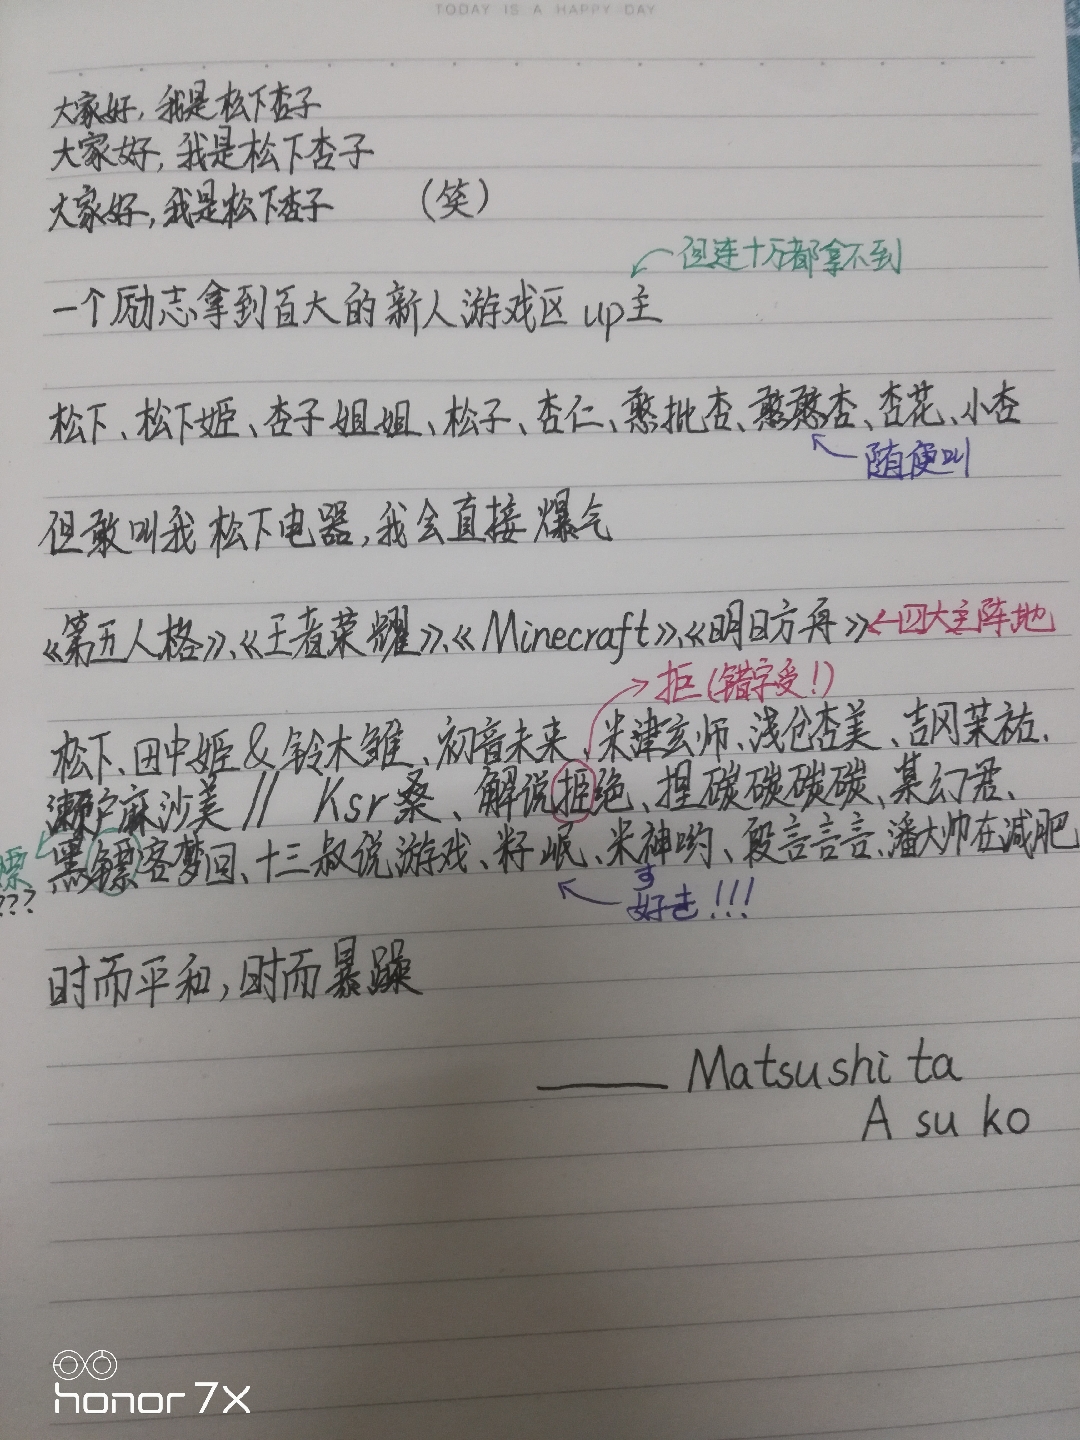 TODAY IS A HAPPY DAY
大家好，我是松下杏子
大家好，我是松下杏子
大家好，我是松下杏子 （笑）
但连十万都拿不到
一个励志拿到百大的新人游戏区up主
松下、松下姬、杏子姐姐、松子、杏仁、憨批杏、憨憨杏、杏花、小杏
随便叫
但敢叫我松下电器，我会直接爆气
《第五人格》、《王者荣耀》、《Minecraft》、《明日方舟》←四大主阵地
拒（错字受！）
松下、田中姬&铃木雏、初音未来、米津玄师、浅仓杏美、吉冈茉祐、
濑户麻沙美 // Ksr桑、解说拒绝、捏碳碳碳碳、某幻君、
黑镖客梦回、十三叔说游戏、籽岷、米神哟、殷言言言、潘大帅在减肥
镖
???
すき
好き!!!
时而平和，时而暴躁
—— Matsushita
Asuko
honor 7X